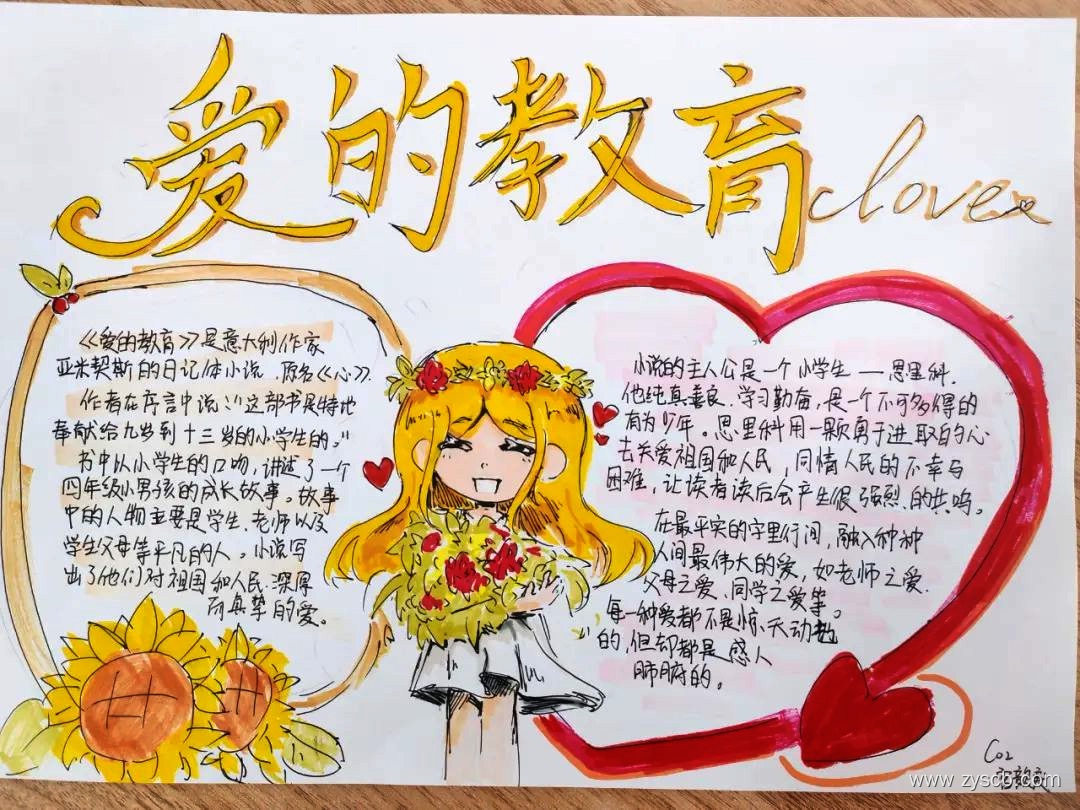 爱的教育
clove
《爱的教育》是意大利作家
亚米契斯的日记体小说.原名《心》.
作者在序言中说:"这部书是特地
奉献给九岁到十三岁的小学生的。"
书中以小学生的口吻,讲述了一个
四年级小男孩的成长故事。故事
中的人物主要是学生.老师以及
学生父母等平凡的人。小说写
出了他们对祖国和人民.深厚
而真挚的爱。
小说的主人公是一个小学生——恩里科.
他纯真善良.学习勤奋,是一个不可多得的
有为少年。恩里科用一颗勇于进取的心
去关爱祖国和人民,同情人民的不幸与
困难,让读者读后会产生很强烈.的共鸣。
在最平实的字里行间,融入种种
人间最伟大的爱,如老师之爱.
父母之爱、同学之爱等。
每一种爱都不是惊天动地
的,但却都是感人
肺腑的。
C02
www.zyscg.com